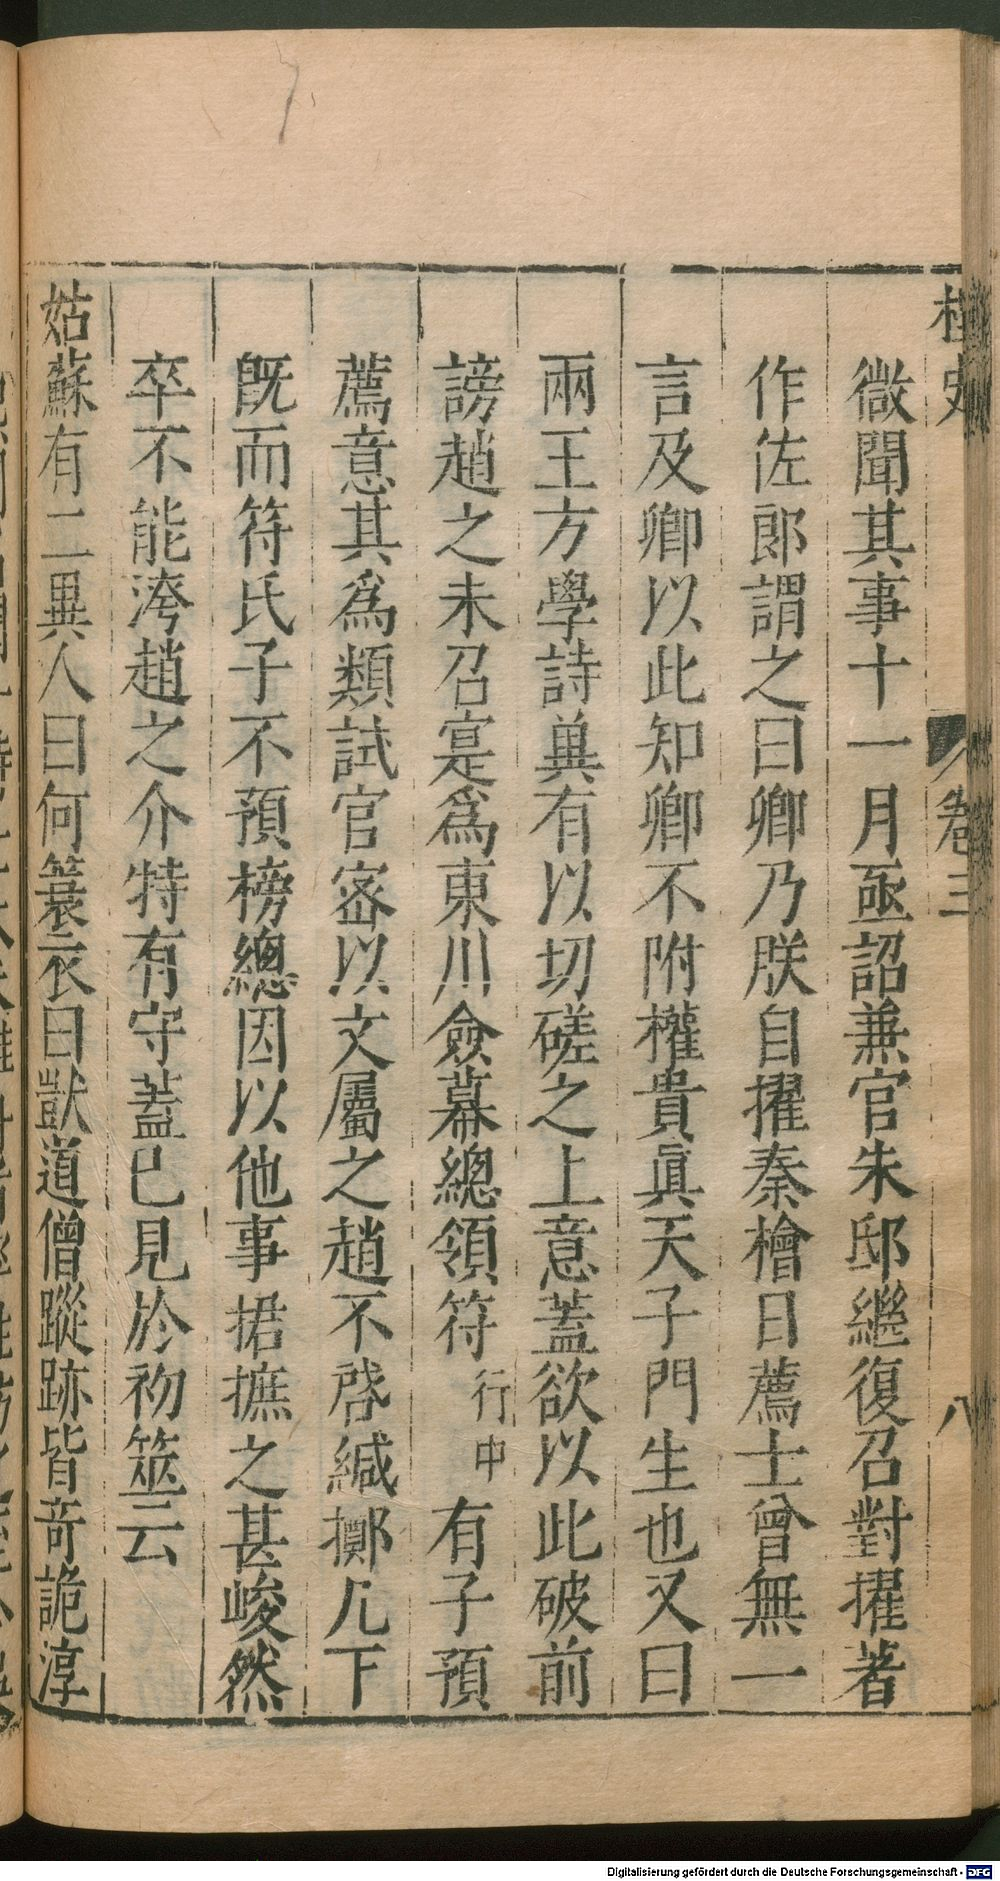 桯史
卷三
八
微聞其事十一月亟詔兼官朱邸繼復召對擢著
作佐郎謂之曰卿乃朕自擢秦檜日薦士曾無一
言及卿以此知卿不附權貴眞天子門生也又曰
兩王方學詩兾有以切磋之上意蓋欲以此破前
謗趙之未召寔爲東川僉幕總領符行中有子預
薦意其爲類試官宻以文屬之趙不啓緘擲几下
旣而符氏子不預榜總因以他事捃摭之甚峻然
卒不能洿趙之介特有守蓋已見於初筮云
姑蘇有二異人曰何簔衣曰獃道僧蹤跡皆奇詭淳
Digitalisierung gefördert durch die Deutsche Forschungsgemeinschaft - DFG